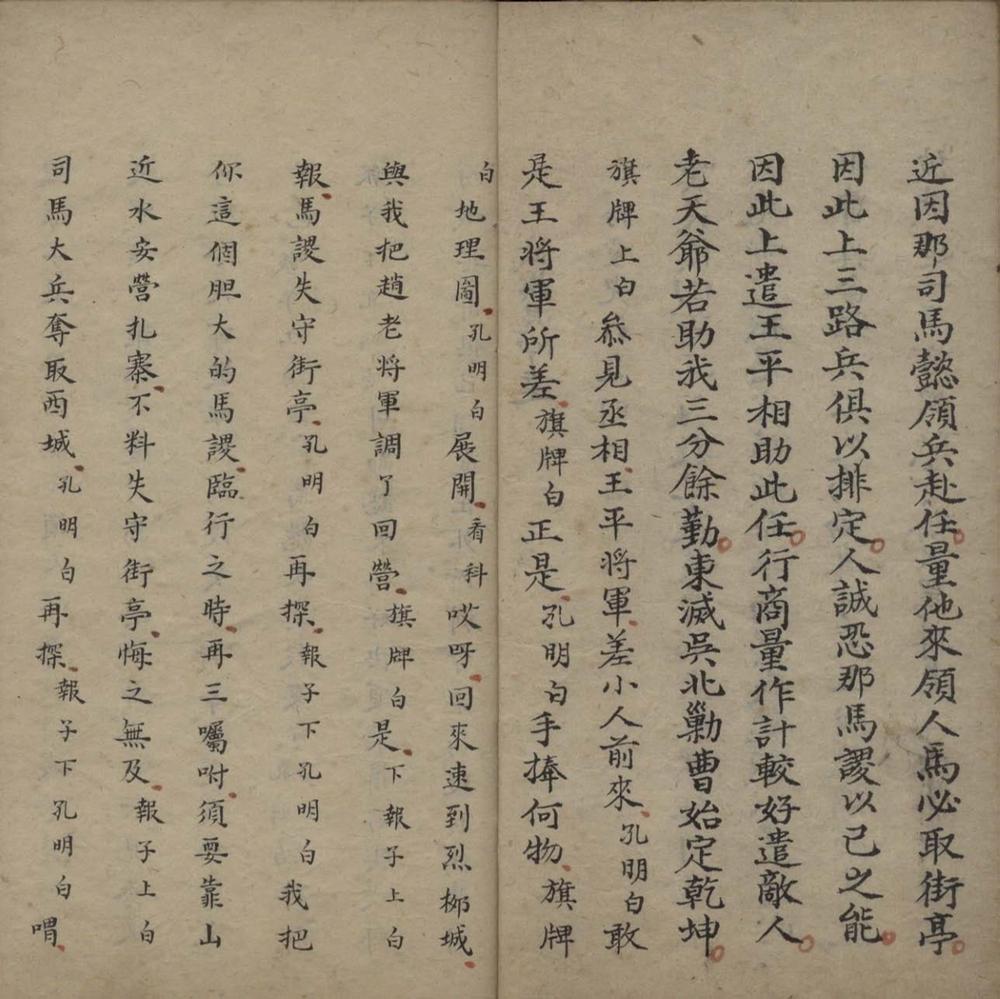 近因那司馬懿領兵赴任量他來領人馬必取街亭
因此上三路兵俱以排定人誠恐那馬謖以己之能
因此上遣王平相助此任行商量作計較好遣敵人
老天爺若助我三分餘勤東滅吳北勦曹始定乾坤
旗牌上白叅見丞相王平將軍差小人前來孔明白敢
是王將軍所差旗牌白正是孔明白手捧何物旗牌
白地理圖孔明白展開看科哎呀回來速到烈柳城
與我把趙老將軍調了回營旗牌白是下報子上白
報馬謖失守街亭孔明白再探報子下孔明白我把
你這個胆大的馬謖臨行之時再三囑咐須要靠山
近水安營扎寨不料失守街亭悔之無及報子上白
司馬大兵奪取西城孔明白再探報子下孔明白喟